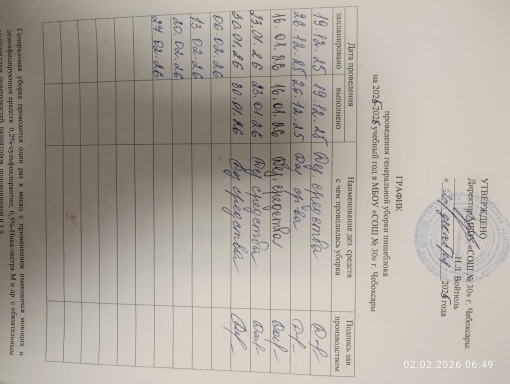 УТВЕРЖДЕНО
Директор МБОУ «СОШ № 30» г. Чебоксары
Н.Л. Войтюль
« года
ГРАФИК
проведения генеральной уборки пищеблока
на учебный год в МБОУ «СОШ № 30» г. Чебоксары
Дата проведения
запланировано выполнено Наименование дез. средств с чем проводилась уборка Подпись зав производством
19.12.25 19.12.25 Дез. средства
26.12.25 26.12.25 Дез ср-ва
16.01.26 16.01.26 Дез. средства
23.01.26 23.01.26 Дез средства
30.01.26 30.01.26 Дез средства
06.02.26
13.02.26
20.02.26
27.02.26
Генеральная уборка проводится один раз в месяц с применением имеющихся моющих и
дезинфицирующих средств: 0,2%-сульфохлорантин; 0,5%-Ника-экстра М и др. с обязательным
02.02.2026 06:49